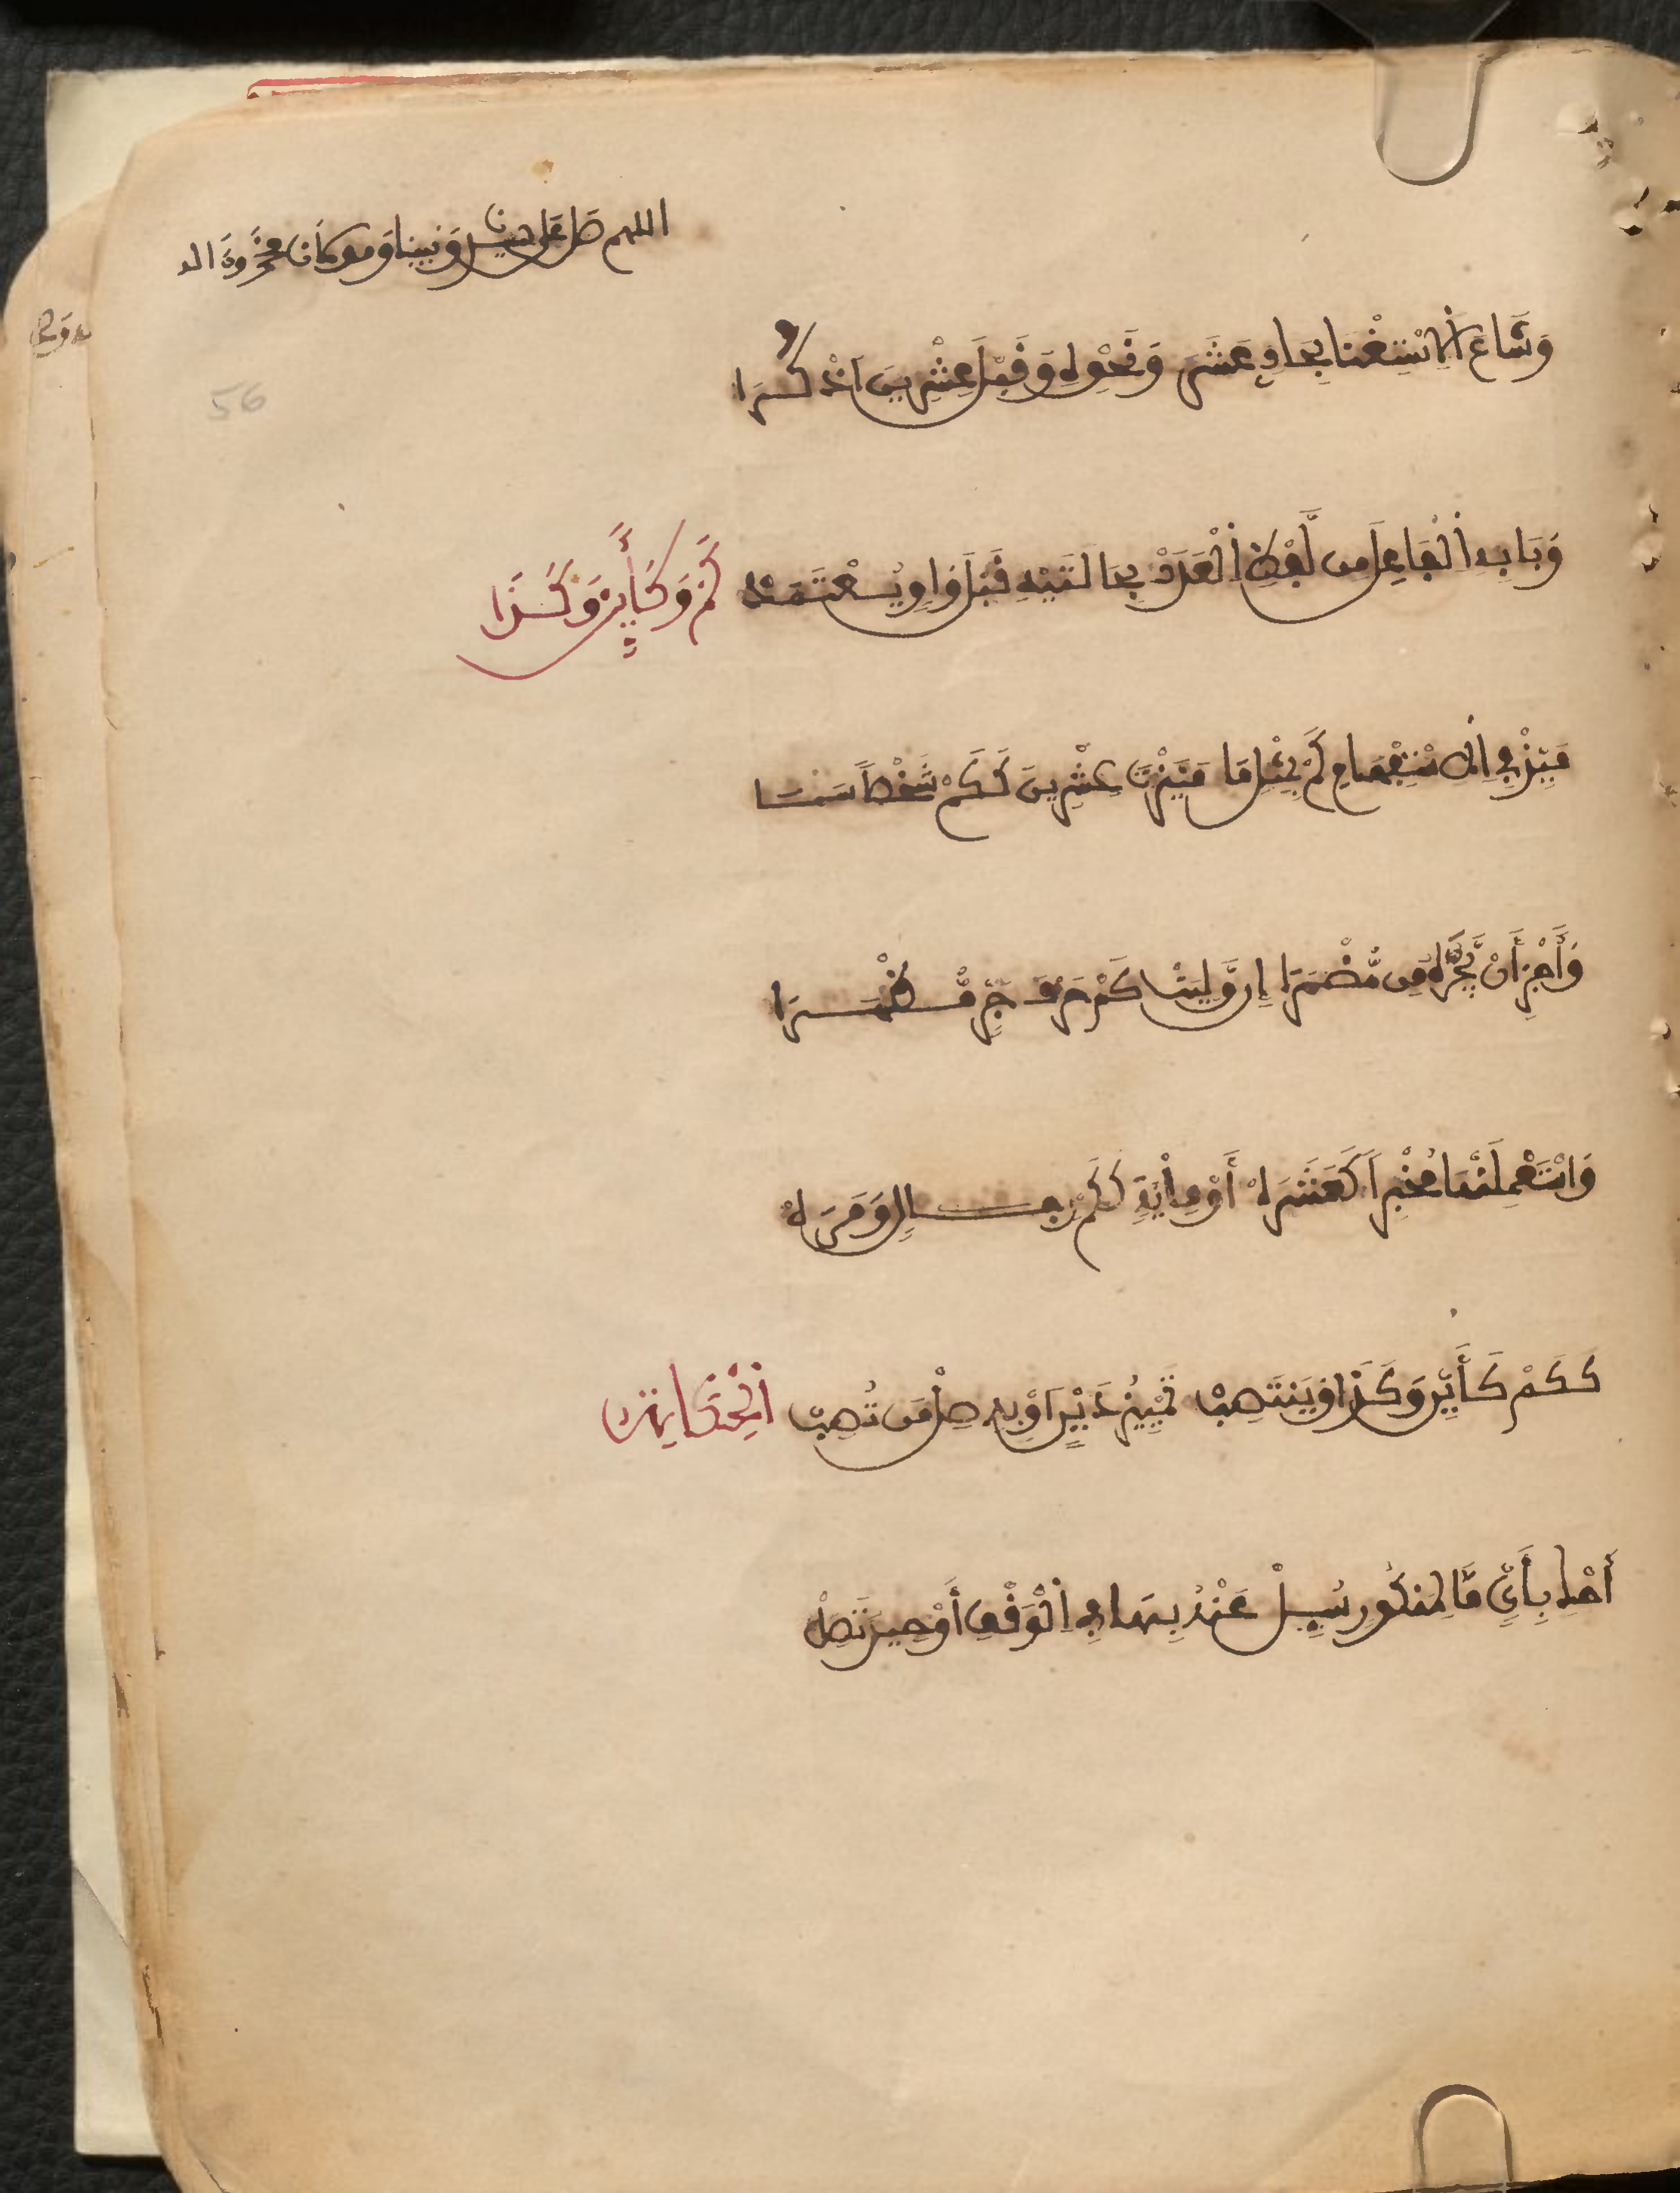 اللهم صل على حبيبنا ونبينا ومولانا محمد وءاله
56
وَشَاعَ الِاسْتِغْنَا بِحَادِي عَشَرَ وَنَحْوِهِ وَقَبْلَ عِشْرِينَ اذْكُرَا
وَبَابِهِ الْفَاعِلَ مِن لَّفْظِ الْعَدَدْ بِحَالَتَيْهِ قَبْلَ وَاوٍ يُعْتَمَدْ كَمْ وَكَأَيِّنْ وَكَذَا
مَيِّزْ فِي الِاسْتِفْهَامِ كَمْ بِمِثْلِ مَا مَيَّزْتَ عِشْرِينَ كَكَمْ شَخْصاً سَمَا
وَأَجِزَ أَنْ تَجُرَّهُ مِن مُّضْمَرَا إِن وَّلِيَتْ كَمْ حَرْفَ جَرٍّ مُظْهَرَا
وَاسْتَعْمِلَنْهَا مُخْبِراً كَعَشَرَهْ أَوْ مِائَةٍ كَكَمْ رِجَالٍ وَمَرَهْ
كَكَمْ كَأَيِّن وَكَذَا وَيَنتَصِبْ تَمْيِيزُ ذَيْنِ أَوْ بِهِ صِلْ مِن تُصِبْ الْحِكَايَة
أَحْكِ بِأَيٍّ مَّا لِمَنكُورٍ سُئِلْ عَنْهُ بِهَا فِي الْوَقْفِ أَوْ حِينَ تَصِلْ